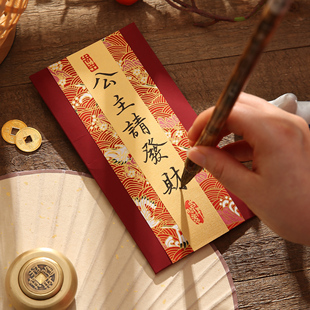 公主請發財